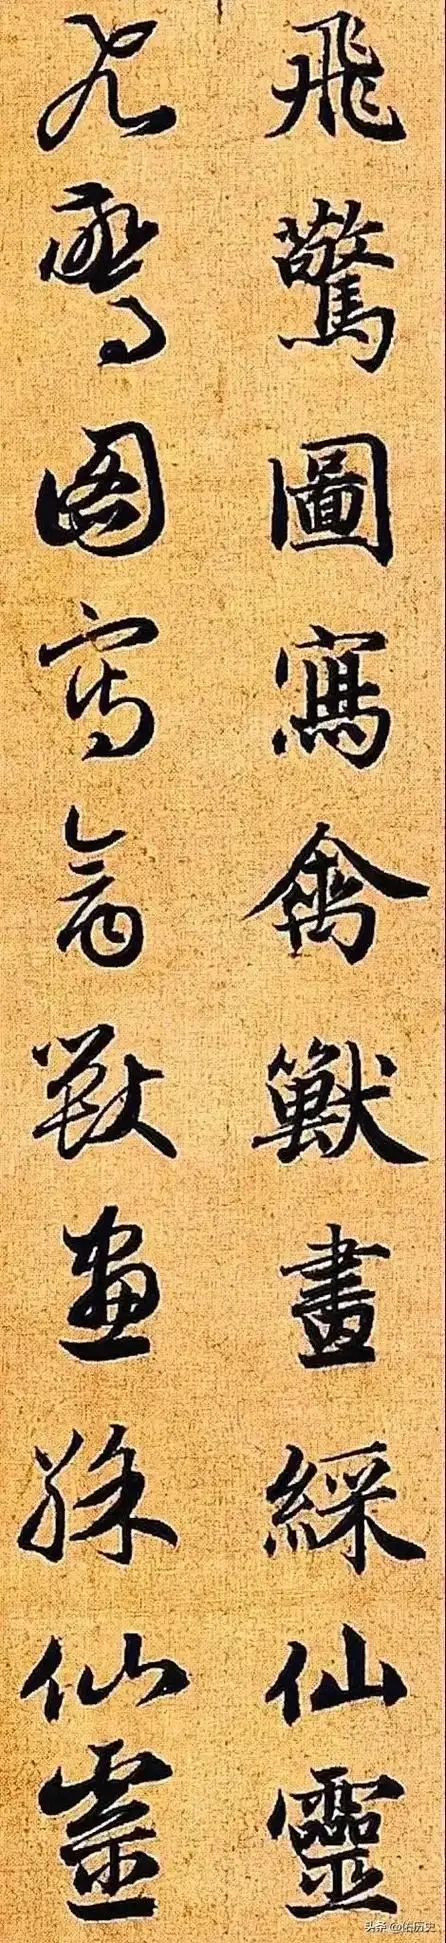 飛驚圖寫禽獸畫綵仙靈
飛驚圖寫禽獸畫綵仙靈
头条 @佑历史